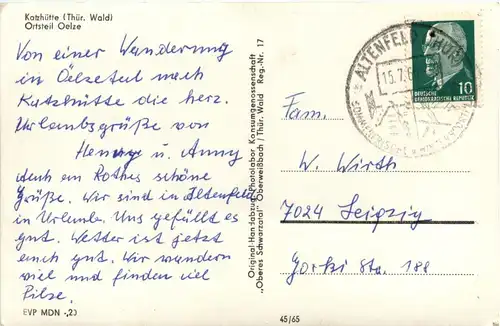 Katzhütte (Thür. Wald)
Ortsteil Oelze
Von einer Wanderung
in Oelzetal nach
Katzhütte die herz.
Urlaubsgrüße von
u. Anny
auch an Rothes schöne
Grüße. Wir sind in Altenfeld
in Urlaub. Uns gefällt es
gut. Wetter ist jetzt
auch gut. Wir wandern
viel und finden viel
Pilze.
EVP MDN -,20
Original Handabzug Photolabor Konsumgenossenschaft
„Oberes Schwarzatal" Oberweißbach / Thür. Wald Reg.-Nr. 17
45/65
ALTENFELD (THÜR)
15.7.6
DEUTSCHE
DEMOKRATISCHE REPUBLIK
10
Fam.
W. Wirth
7024 Leipzig
Gorki Str. 188